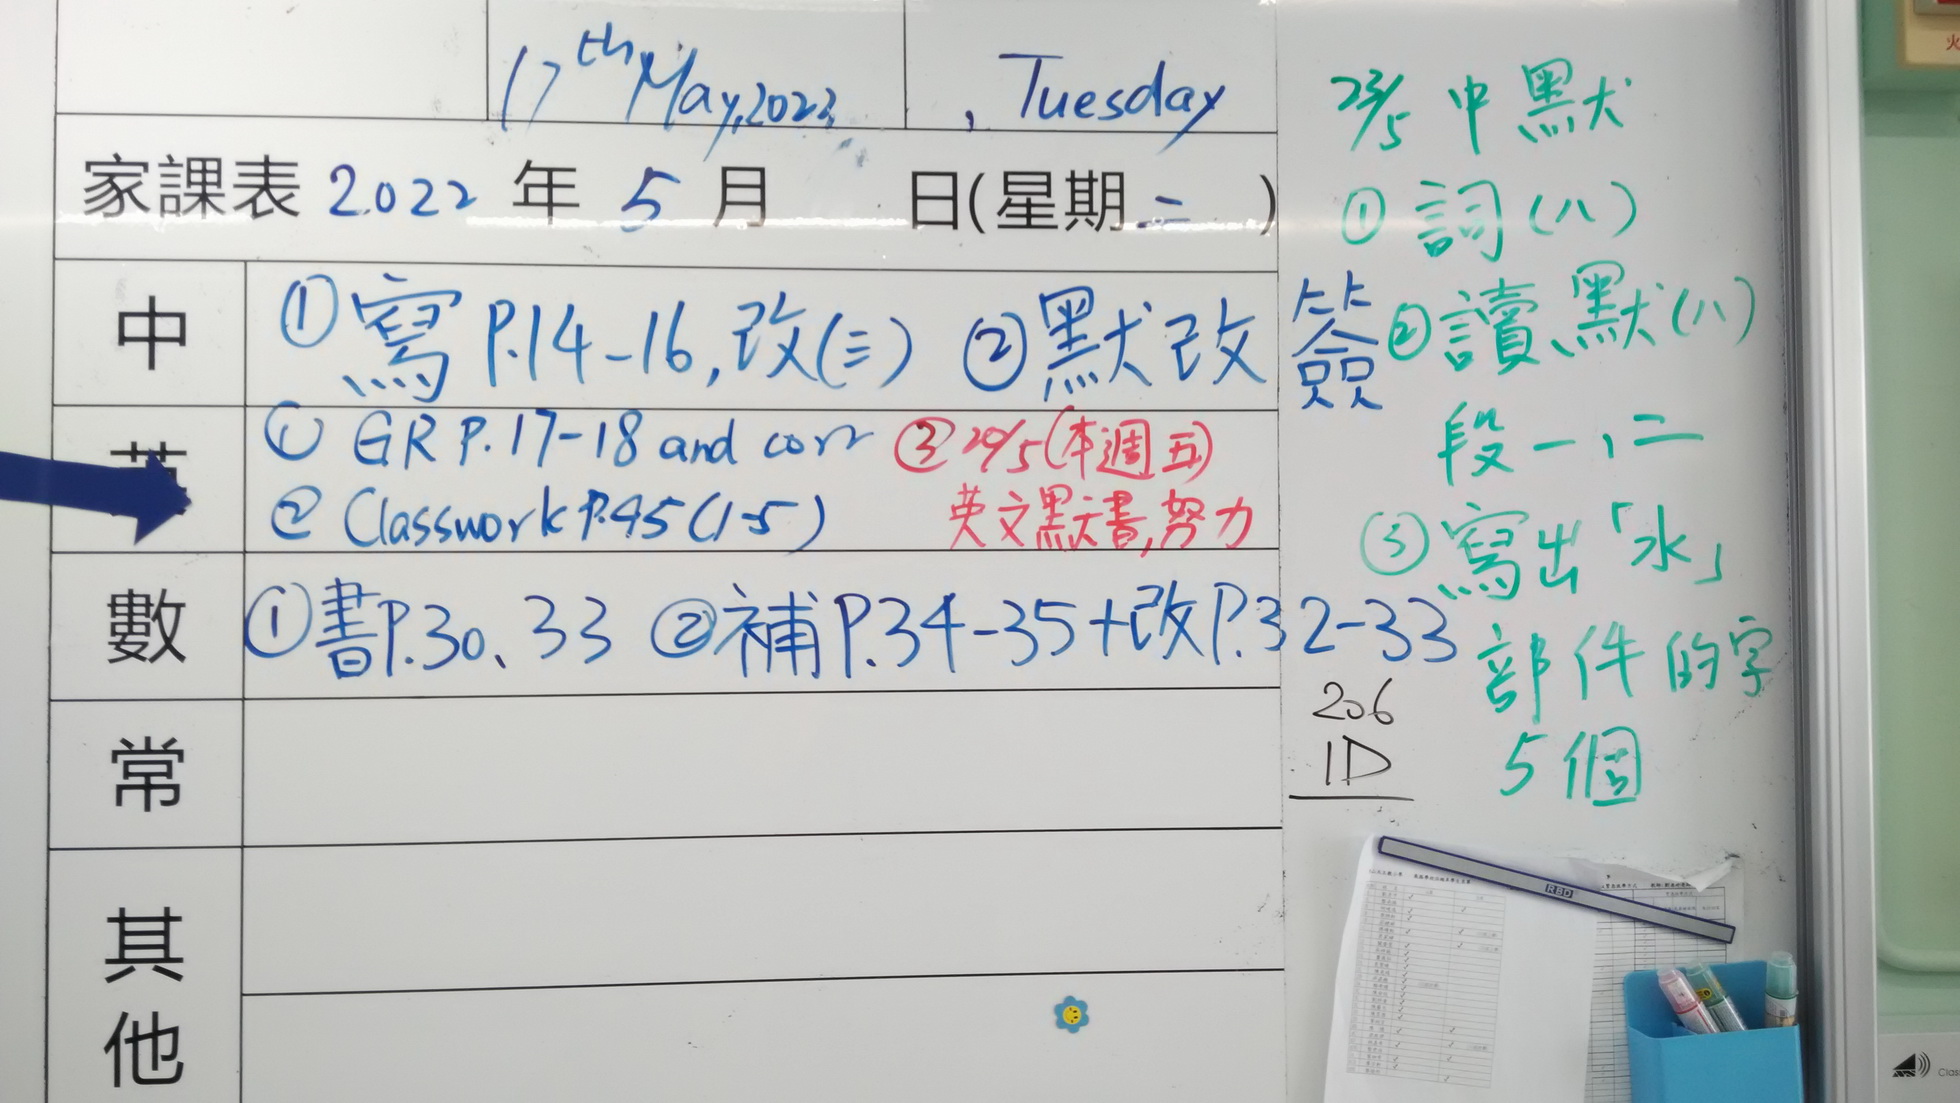 17th May, 2022, Tuesday
家課表 2022 年 5 月 日(星期二 )
中 ①寫 P.14-16, 改(三) ②默改 簽
英 ① GR P.17-18 and corr
② Classwork P.45 (1-5)
③ 20/5 (本週五)
英文默書, 努力
數 ①書P.30、33 ②補P.34-35+改P.32-33
常
其他
23/5 中默
① 詞(八)
② 讀默(八)
段一、二
③ 寫出「水」
部件的字
5個
206
1D
RBD
火